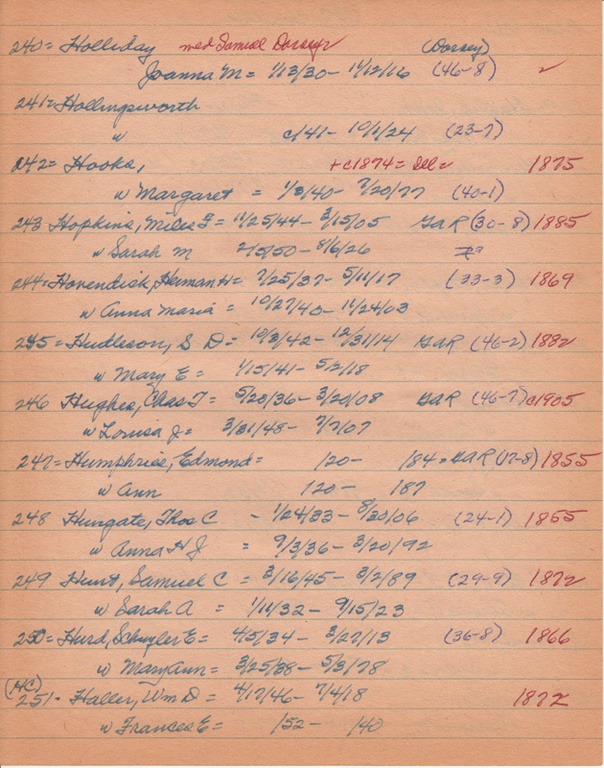 240 = Holliday med Samuel Dorsey (Dorsey)
Joanna M = 1/13/30 - 11/12/16 (46-8) ✓
241 = Hollingsworth
w c/41 - 10/1/24 (23-7)
242 = Hooks, +c1874 = 1875
w Margaret = 1/3/40 - 7/20/77 (40-1)
243 Hopkins, Miles F = 11/25/44 - 3/15/05 GAR (30-8) 1885
w Sarah M 2/5/50 - 8/6/26
244 = Hovendick, Herman H = 7/25/37 - 5/11/17 (33-3) 1869
w Anna Maria = 10/27/40 - 11/24/03
245 = Hudleson, S D = 10/3/42 - 12/31/14 GAR (46-2) 1882
w Mary E = 1/15/41 - 5/2/18
246 Hughes, Chas T = 5/20/36 - 3/20/08 GAR (46-7) c1905
w Lousa J = 3/31/48 - 7/7/07
247 = Humphries, Edmond = /20 - /84 = GAR (17-8) 1855
w Ann /20 - /87
248 Hungate, Thos C - 1/24/33 - 8/30/06 (24-1) 1855
w Anna H J = 9/3/36 - 3/20/92
249 Hunt, Samuel C = 3/16/45 - 3/2/89 (29-9) 1872
w Sarah A = 1/11/32 - 9/15/23
250 = Hurd, Schuyler E = 4/5/34 - 3/27/13 (36-8) 1866
w Mary Ann = 3/25/38 - 5/3/78
(HC)
251 - Haller, Wm D = 4/17/46 - 7/4/18 1872
w Frances E = /52 - /40